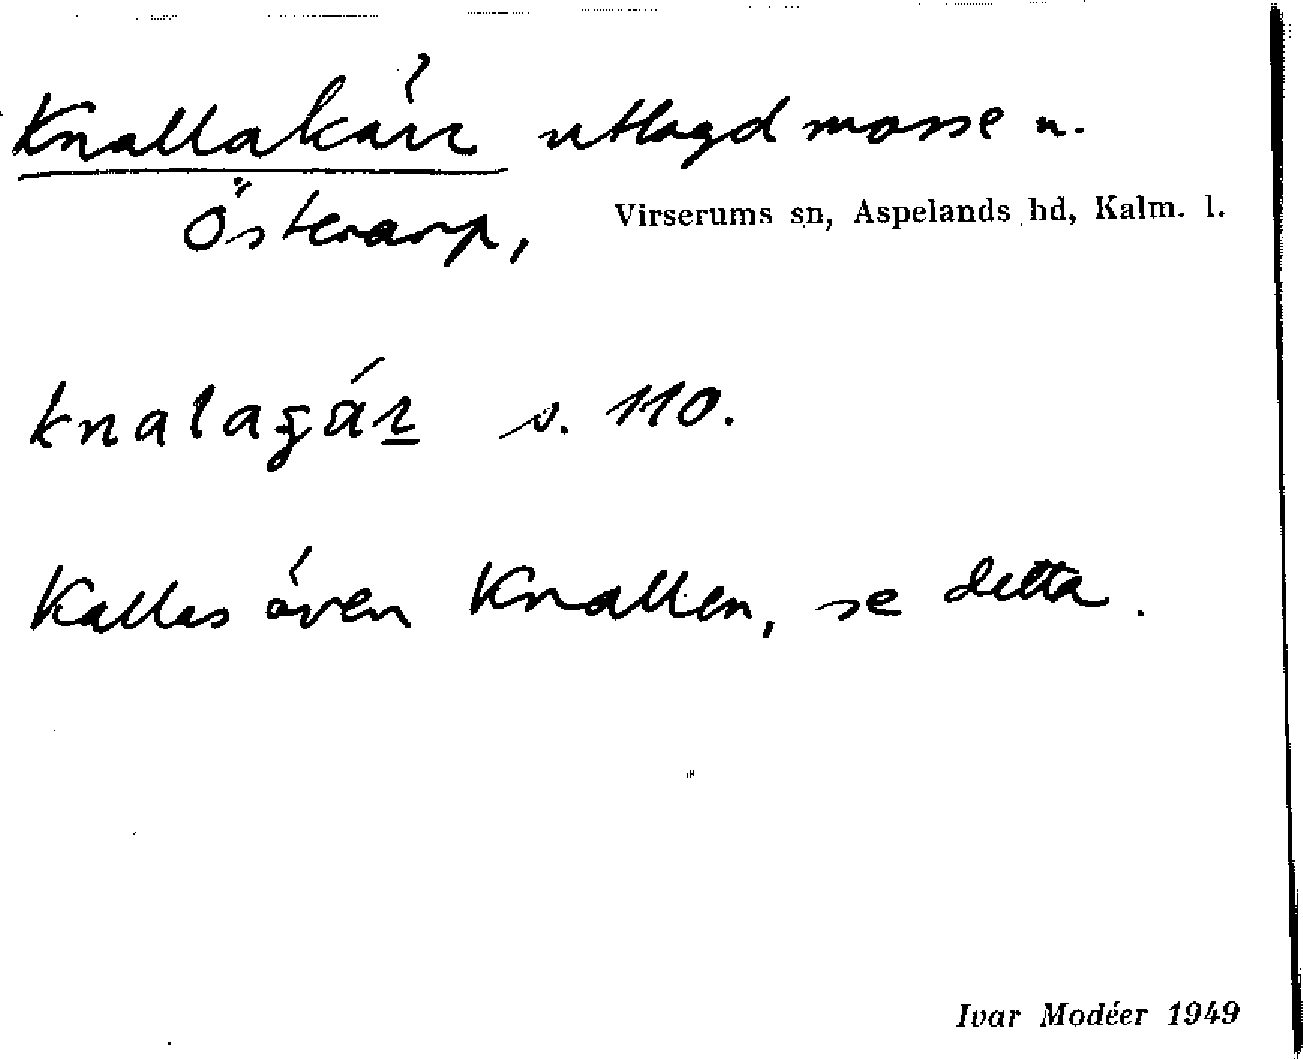 Knallakärr utlagd mosse u.
Österarp, Virserums sn, Aspelands hd, Kalm. l.
s. 110.
Kallas även Knallen, se detta.
Ivar Modéer 1949